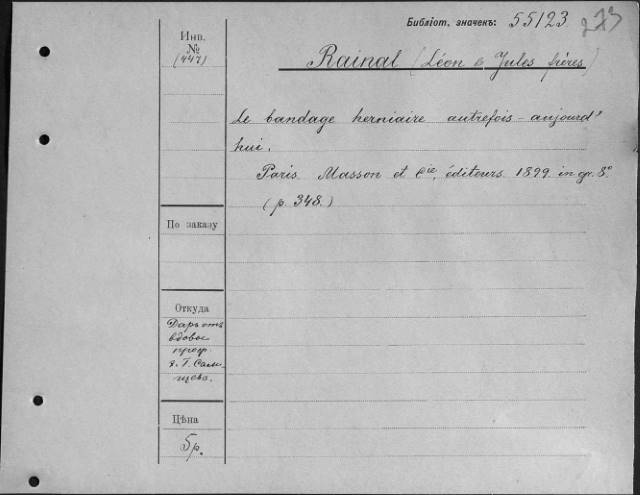 Библіот. значекъ: 55123
Инв.
№
(447)
Rainal (Léon & Jules frères)
Le bandage herniaire autrefois - aujourd'
hui.
Paris. Masson et Cie, éditeurs. 1899. in gr. 8º
(p. 348.)
По заказу
Откуда
Даръ отъ
вдовы
проф.
Цѣна
5р.